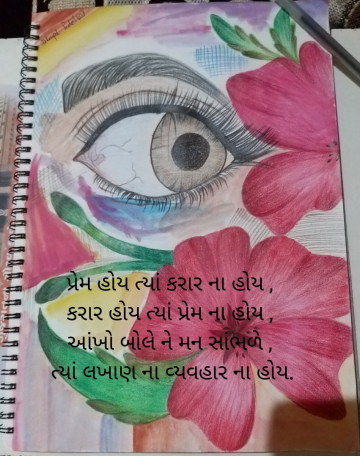 પ્રેમ હોય ત્યાં કરાર ના હોય ,
કરાર હોય ત્યાં પ્રેમ ના હોય ,
આંખો બોલે ને મન સાંભળે ,
ત્યાં લખાણ ના વ્યવહાર ના હોય.